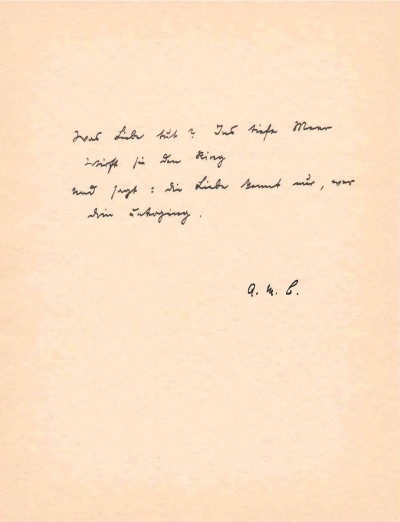 Was Liebe tut? Ins tiefe Meer
wirft sie den Ring
und sagt: die Liebe kennt nur, wer
drin unterging.
A. M. B.